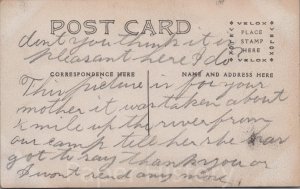 POST CARD
VELOX
PLACE
STAMP
HERE
VELOX
VELOX
VELOX
dont you think it is
pleasant here I do
CORRESPONDENCE HERE
NAME AND ADDRESS HERE
This picture is for your
mother it was taken about
½ mile up the river from
our camp tell her she
got to say thank you or
I wont send any more.